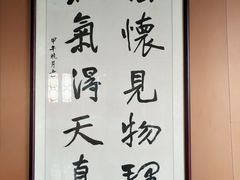 懷見物理
氣得天真
甲午秋月